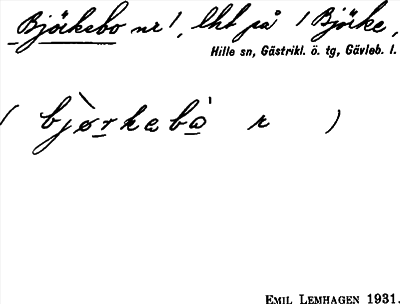 Björkebo nr 1, lht på 1 Björke,
Hille sn, Gästrikl. ö. tg, Gävleb. l.
( bjørkebò r )
EMIL LEMHAGEN 1931.